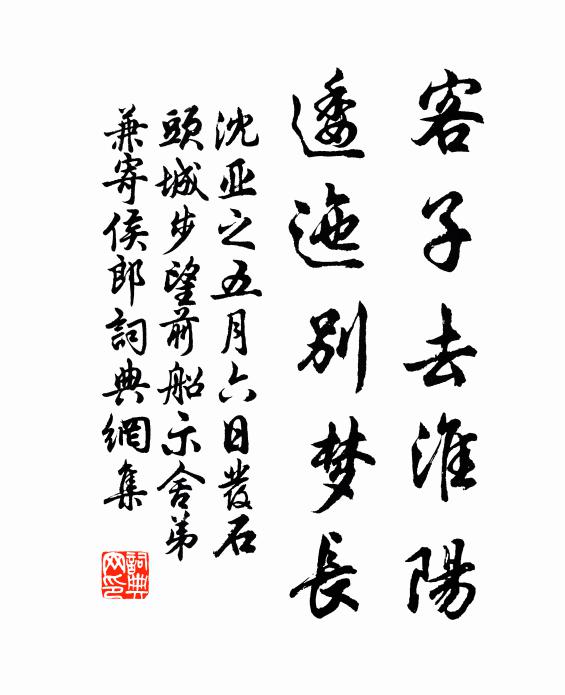 客子去淮陽
逶迤別梦長
沈亚之五月六日發石
頭城步望前船示舍弟
兼寄侯郎詞典網集
詞典网印